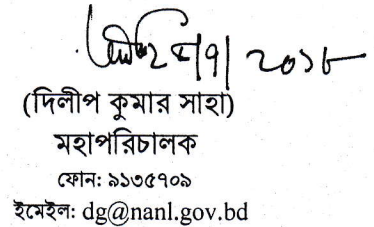 /৭/২০১৮
(দিলীপ কুমার সাহা)
মহাপরিচালক
ফোন: ৯১৩৫৭০৯
ইমেইল: dg@nanl.gov.bd